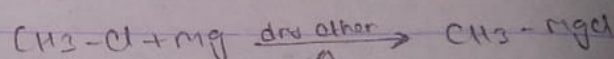 CH3-Cl + Mg dry ether → CH3-MgCl